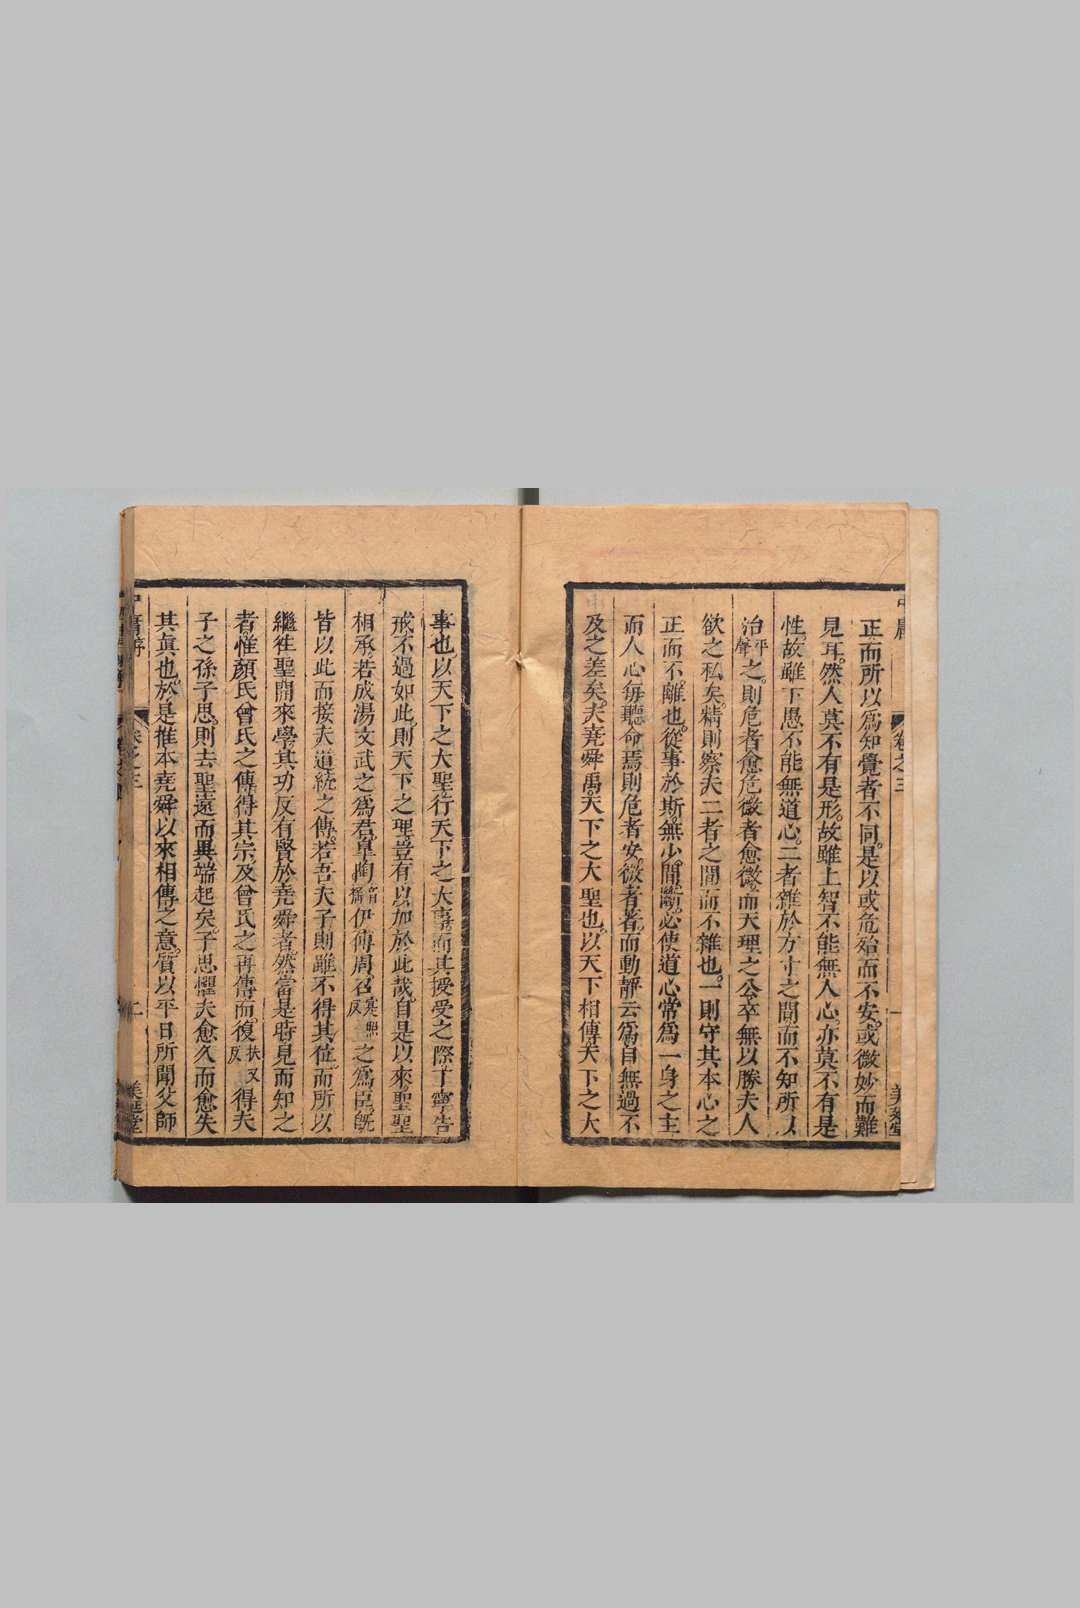 正而所以爲知覺者不同。是以或危殆而不安。或微妙而難
見耳。然人莫不有是形。故雖上智不能無人心。亦莫不有是
性。故雖下愚不能無道心。二者雜於方寸之間而不知所以
治平聲之。則危者愈危。微者愈微。而天理之公卒無以勝夫人
欲之私矣。精則察夫二者之間而不雜也。一則守其本心之
正而不離也。從事於斯。無少間斷。必使道心常爲一身之主
而人心每聽命焉。則危者安。微者著。而動靜云爲自無過不
及之差矣。夫堯舜禹。天下之大聖也。以天下相傳。天下之大
事也。以天下之大聖。行天下之大事。而其授受之際。丁寧告
戒。不過如此。則天下之理。豈有以加於此哉。自是以來。聖聖
相承。若成湯文武之爲君。皐陶伊傅周召之爲臣。旣
皆以此而接夫道統之傳。若吾夫子則雖不得其位。而所以
繼徃聖開來學。其功反有賢於堯舜者。然當是時。見而知之
者。惟顏氏曾氏之傳得其宗。及曾氏之再傳。而復扶又反得夫
子之孫子思。則去聖遠而異端起矣。子思懼夫愈久而愈失
其眞也。於是推本堯舜以來相傳之意。質以平日所聞父師
中庸序
卷之三
二